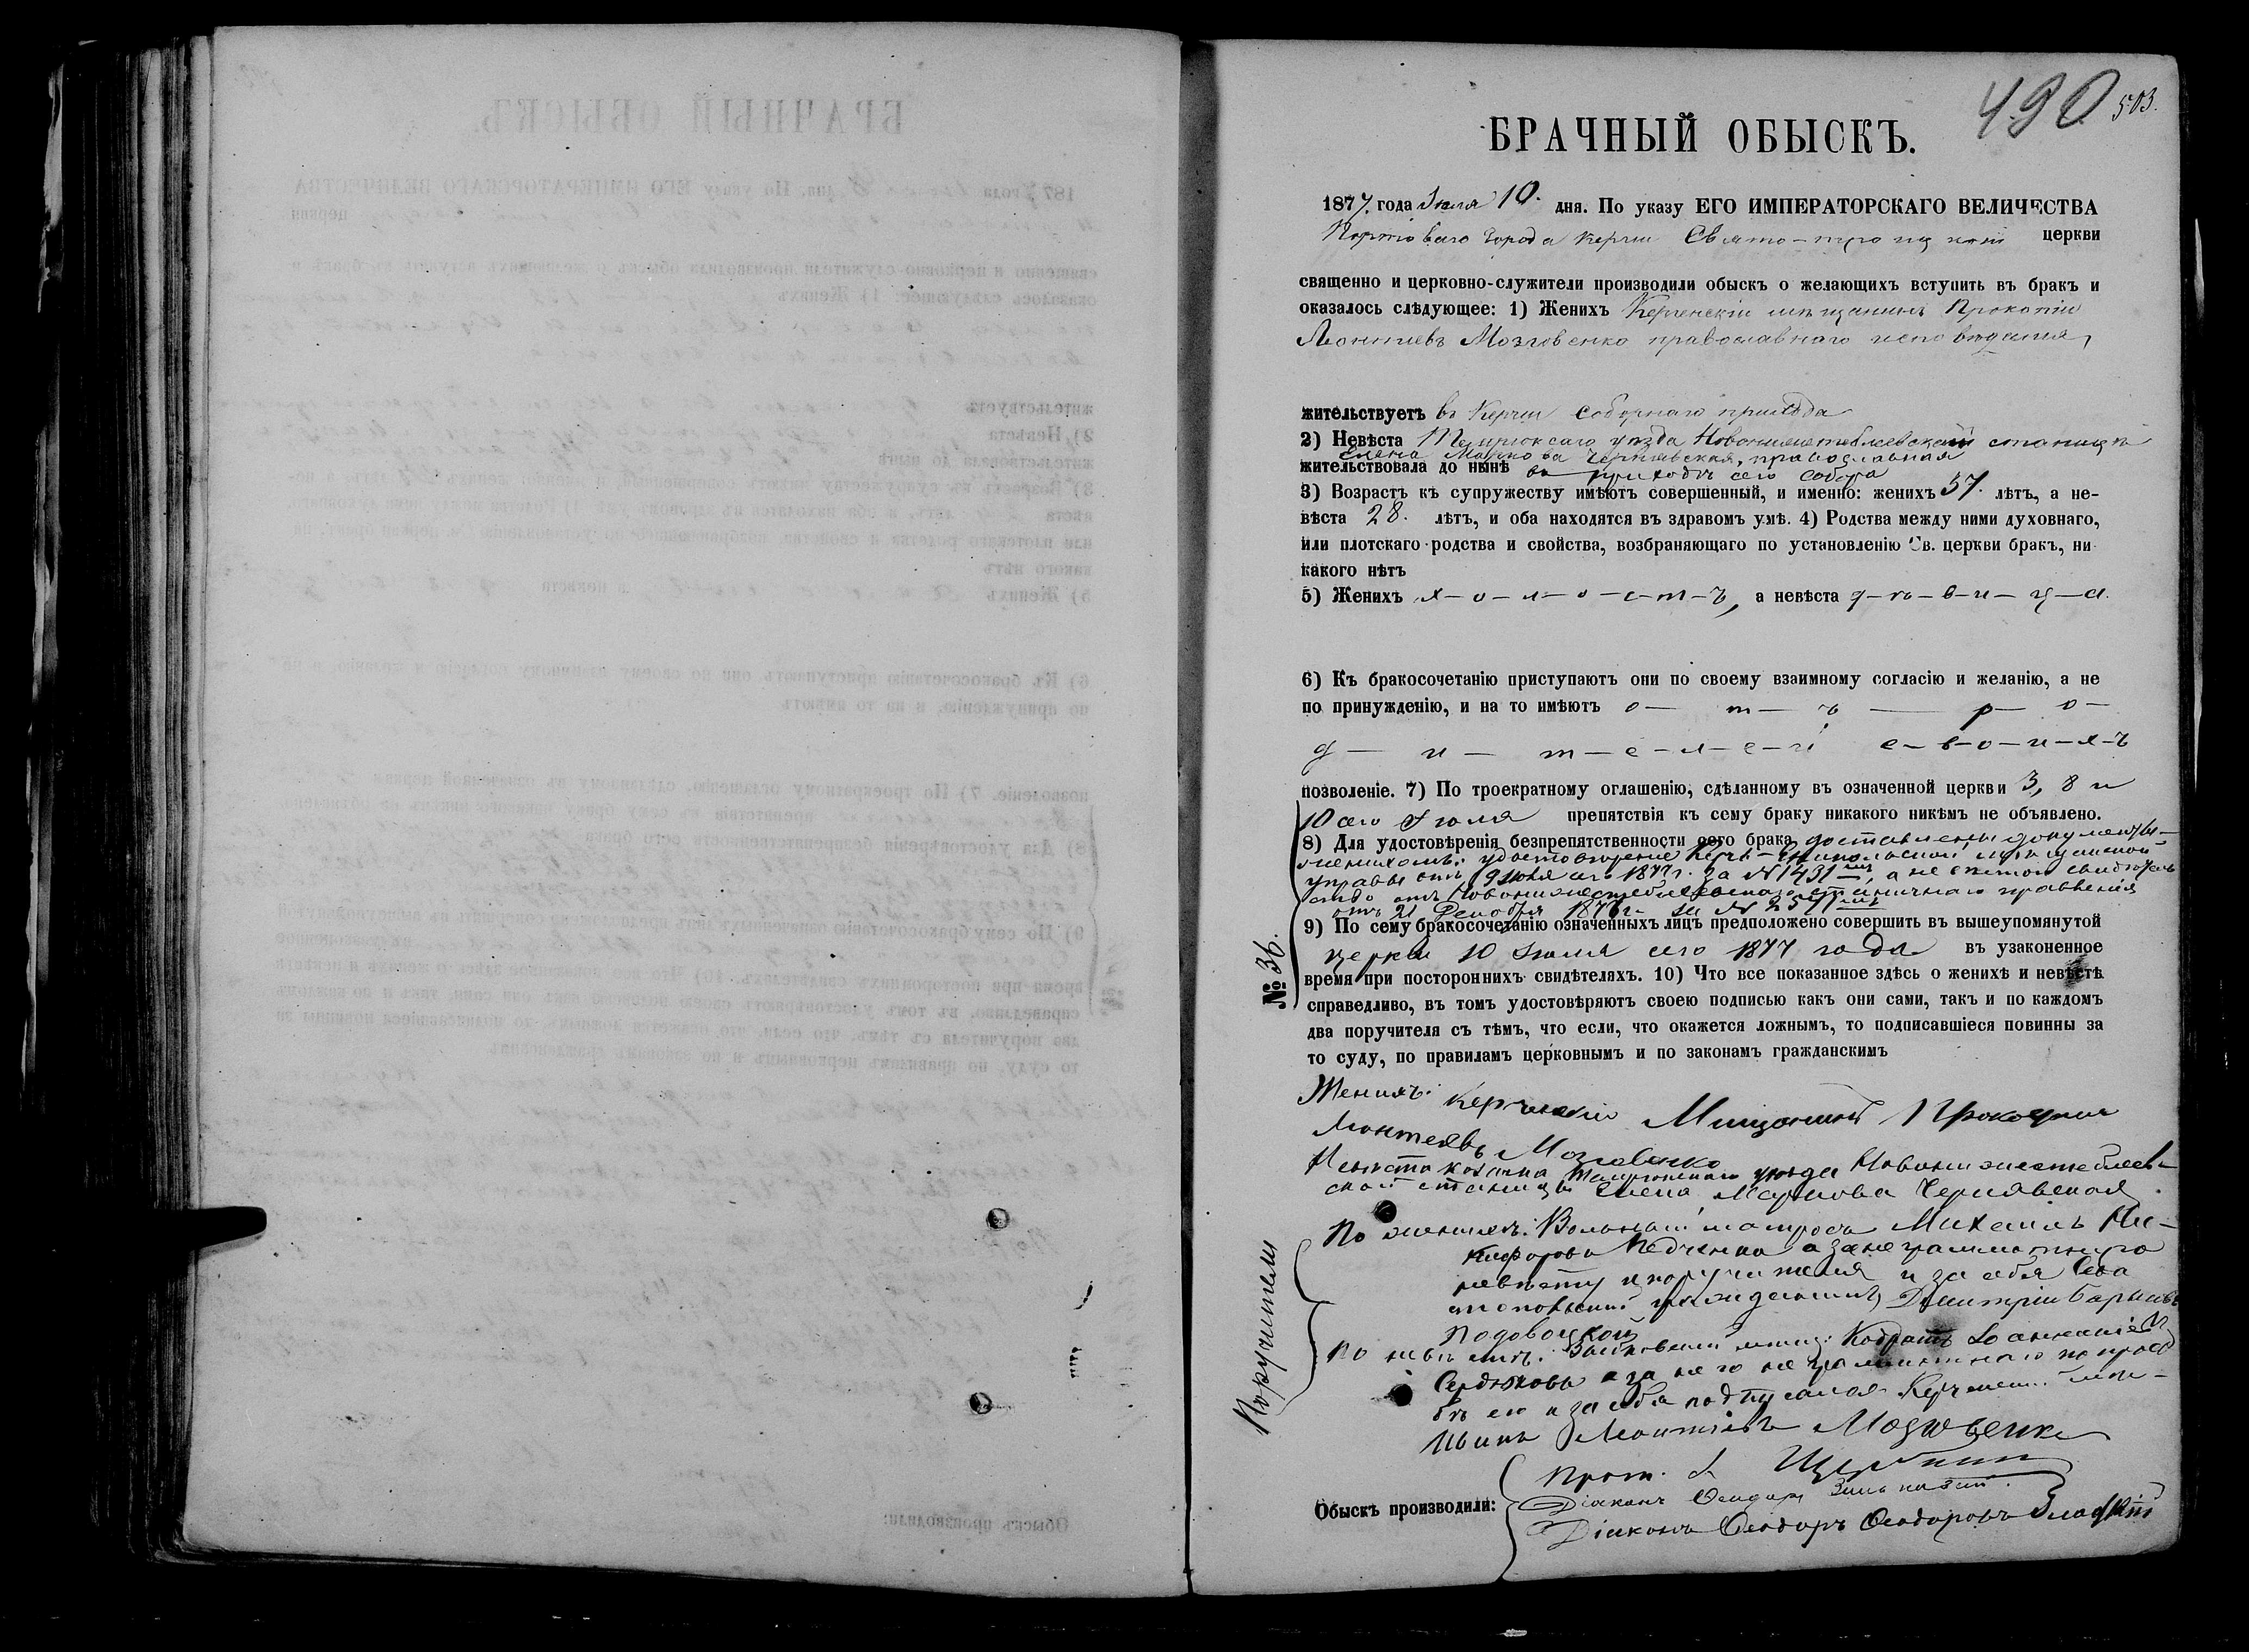 490 503.
БРАЧНЫЙ ОБЫСКЪ.
1877. года Іюля 10. дня. По указу ЕГО ИМПЕРАТОРСКАГО ВЕЛИЧЕСТВА
Портоваго города Керчи Свято-троицкой церкви
священно и церковно-служители производили обыскъ о желающихъ вступить въ бракъ и
оказалось слѣдующее: 1) Женихъ Керченскій мѣщанинъ Прокопій
Леонтіевъ Мозговенко православнаго исповѣданія,
жительствуетъ въ Керчи соборнаго прихода
2) Невѣста Темрюкскаго уѣзда Новонижестеблеевской станицы
Елена Маркова Чернявская, православная
жительствовала до нынѣ въ приходѣ сего собора
3) Возрастъ къ супружеству имѣютъ совершенный, и именно: женихъ 37. лѣтъ, а не-
вѣста 28. лѣтъ, и оба находятся въ здравомъ умѣ. 4) Родства между ними духовнаго,
или плотскаго родства и свойства, возбраняющаго по установленію Св. церкви бракъ, ни-
какого нѣтъ
5) Женихъ х-о-л-о-с-т-ъ, а невѣста д-ѣ-в-и-ц-а.
6) Къ бракосочетанію приступаютъ они по своему взаимному согласію и желанію, а не
по принужденію, и на то имѣютъ о- т- ъ - р- о-
д- и- т-е-л-е-й с-в-о-и-х-ъ
позволеніе. 7) По троекратному оглашенію, сдѣланному въ означенной церкви 3, 8 и
10 сего Іюля препятствія къ сему браку никакого никѣмъ не объявлено.
8) Для удостовѣренія безпрепятственности сего брака доставлены документы-
женихомъ: удостовѣреніе Керчь-Еникольской мѣщанской
управы отъ 9 Іюля сего 1877 г. за № 1431, а невѣстою свидѣтель
ство отъ Новонижестеблеевскаго станичнаго правленія
отъ 21 1876 г. за №
9) По сему бракосочетанію означенныхъ лицъ предположено совершить въ вышеупомянутой
церкви 10 Іюля сего 1877 года въ узаконенное
время при постороннихъ свидѣтеляхъ. 10) Что все показанное здѣсь о женихѣ и невѣстѣ
справедливо, въ томъ удостовѣряютъ своею подписью какъ они сами, такъ и по каждомъ
два поручителя съ тѣмъ, что если, что окажется ложнымъ, то подписавшіеся повинны за
то суду, по правиламъ церковнымъ и по законамъ гражданскимъ
№ 36.
Женихъ: Керченскій Мищонинъ Прокопий
Леонтеявъ Мозговенко
Невѣста козачка Темрюкскаго уѣзда Новонижестеблеев-
ской станицы Елена Маркова Чернявская.
Поручители
По женихѣ: Вольный матросъ Михаилъ Ни-
кифоровъ а за неграмотнаго
невѣсту и поручителя и за себя Сева
стопольскій Дмитрій
По невѣстѣ: мѣщ: Кодратъ
Сердюковъ а за него неграмотнаго по прось
бѣ его и за себя подписался Керченскій мѣ-
щанинъ Леонтій Мозговенко
Обыскъ производили:
Прот.
Діаконъ Ѳеодоръ
Діаконъ Ѳеодоръ Ѳеодоровъ